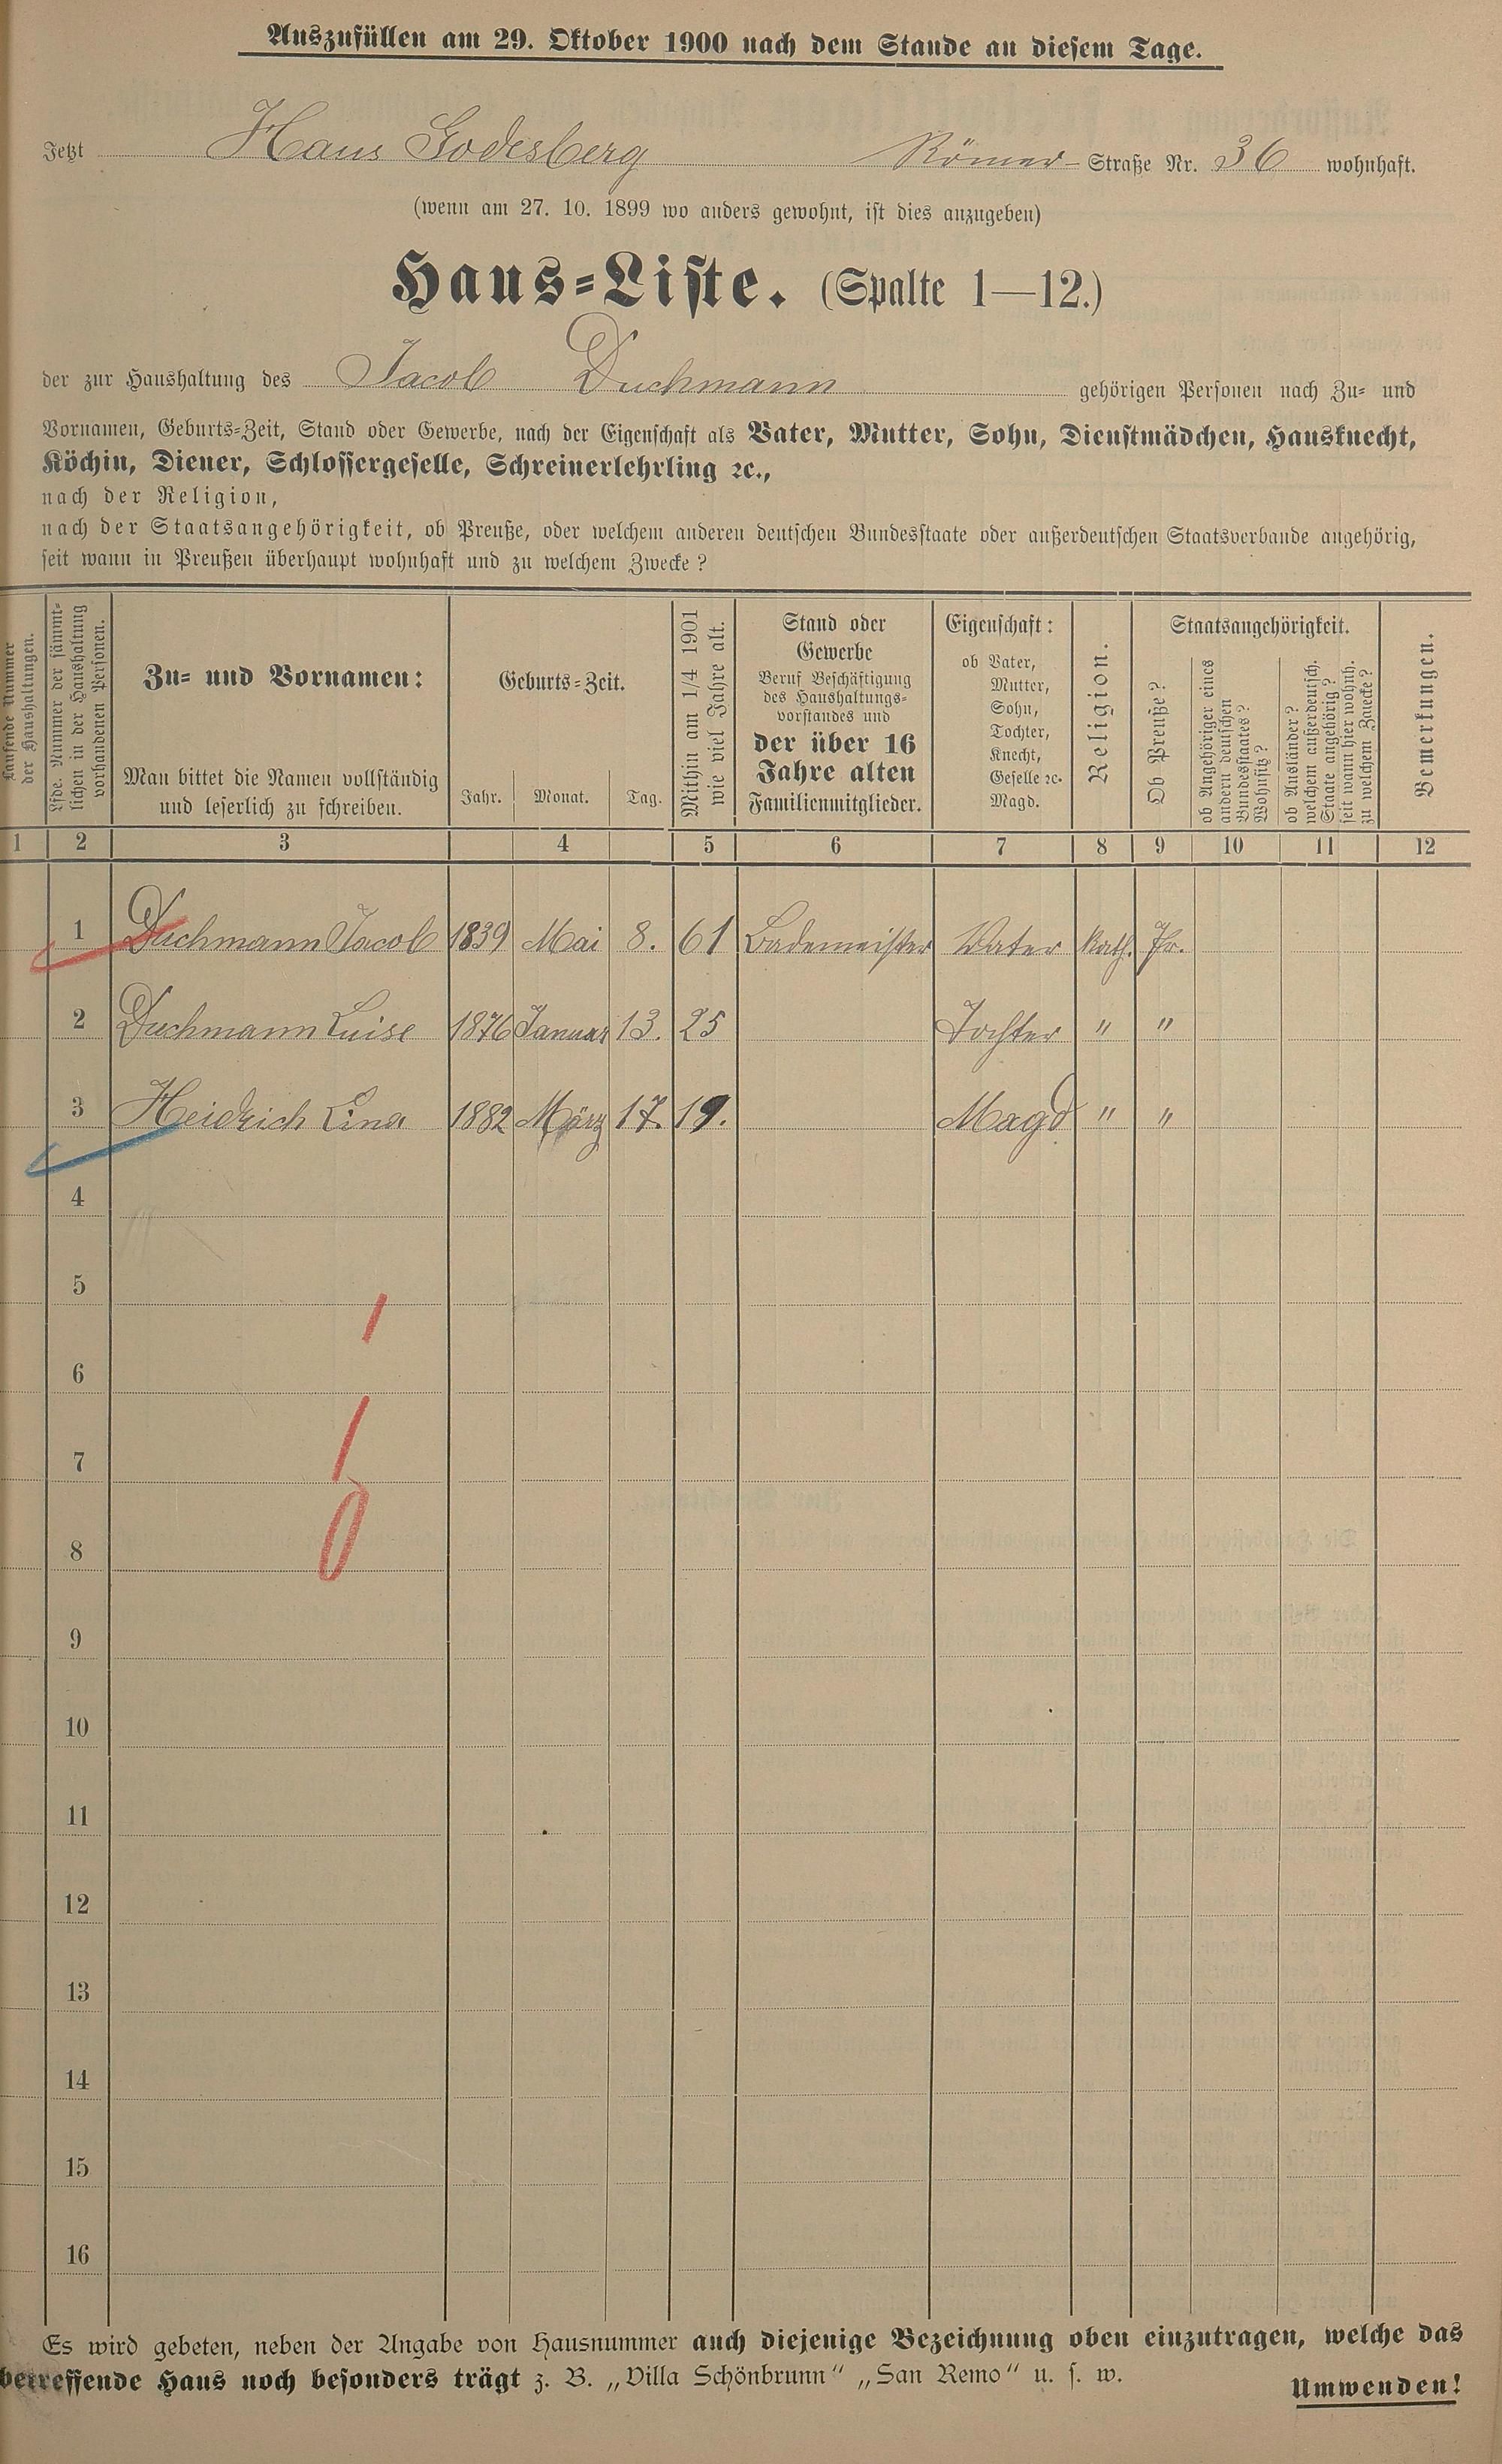 Auszufüllen am 29. Oktober 1900 nach dem Stande an diesem Tage.
Jetzt Haus Godesberg Römer- Straße Nr. 36 wohnhaft.
(wenn am 27. 10. 1899 wo anders gewohnt, ist dies anzugeben)
Haus-Liste. (Spalte 1—12.)
der zur Haushaltung des Jacob Duchmann gehörigen Personen nach Zu- und
Vornamen, Geburts-Zeit, Stand oder Gewerbe, nach der Eigenschaft als Vater, Mutter, Sohn, Dienstmädchen, Hausknecht,
Köchin, Diener, Schlossergeselle, Schreinerlehrling ꝛc.,
nach der Religion,
nach der Staatsangehörigkeit, ob Preuße, oder welchem anderen deutschen Bundesstaate oder außerdeutschen Staatsverbande angehörig,
seit wann in Preußen überhaupt wohnhaft und zu welchem Zwecke?
Laufende Nummer
der Haushaltungen.
Lfde. Nummer der sämmt-
lichen in der Haushaltung
vorhandenen Personen.
Zu- und Vornamen:
Man bittet die Namen vollständig
und leserlich zu schreiben.
Geburts-Zeit.
Jahr. Monat. Tag.
Mithin am 1/4 1901
wie viel Jahre alt.
Stand oder
Gewerbe
Beruf Beschäftigung
des Haushaltungs-
vorstandes und
der über 16
Jahre alten
Familienmitglieder.
Eigenschaft:
ob Vater,
Mutter,
Sohn,
Tochter,
Knecht,
Geselle ꝛc.
Magd.
Religion.
Staatsangehörigkeit.
Ob Preuße?
ob Angehöriger eines
andern deutschen
Bundesstaates?
Wohnsitz?
ob Ausländer?
welchem außerdeutsch.
Staate angehörig?
seit wann hier wohnh.
zu welchem Zwecke?
Bemerkungen.
1 2 3 4 5 6 7 8 9 10 11 12
1 Duchmann Jacob 1839 Mai 8. 61 Bademeister Vater Kath. Pr.
2 Duchmann Luise 1876 Januar 13. 25 Tochter " "
3 Heidrich Lina 1882 März 17. 19. Magd " "
4
5
6
7
8
9
10
11
12
13
14
15
16
Es wird gebeten, neben der Angabe von Hausnummer auch diejenige Bezeichnung oben einzutragen, welche das
betreffende Haus noch besonders trägt z. B. „Villa Schönbrunn" „San Remo" u. s. w.
Umwenden!